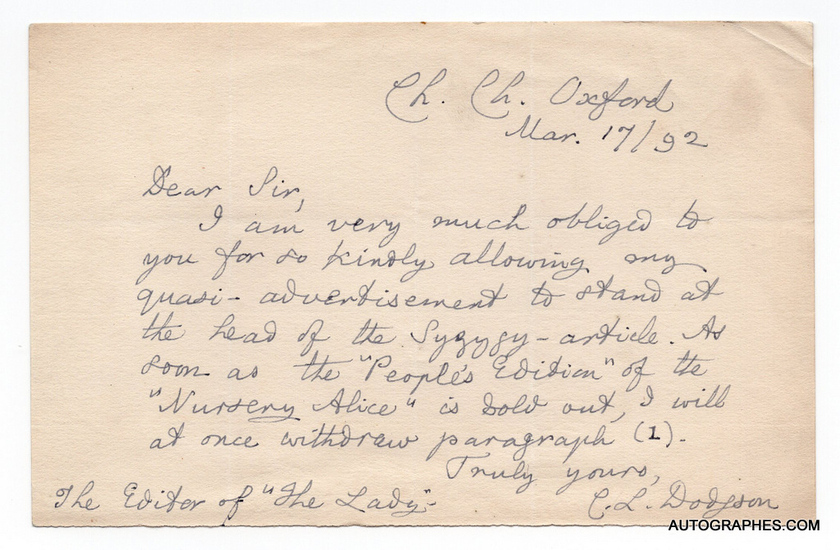 Ch. Ch. Oxford
Mar. 17/92
Dear Sir,
I am very much obliged to
you for so kindly allowing my
quasi-advertisement to stand at
the head of the Syzygy-article. As
soon as the "People's Edition" of the
"Nursery Alice" is sold out, I will
at once withdraw paragraph (1).
Truly yours,
C. L. Dodgson
The Editor of "The Lady"-
AUTOGRAPHES.COM